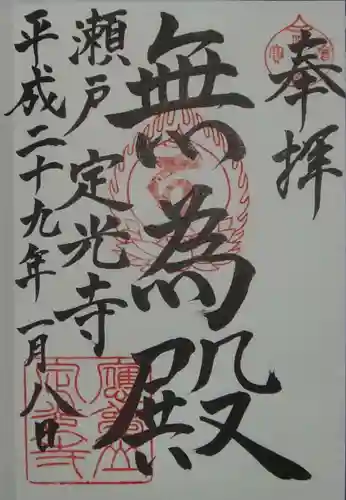 奉拝
無為殿
瀬戸 定光寺
平成二十九年一月八日